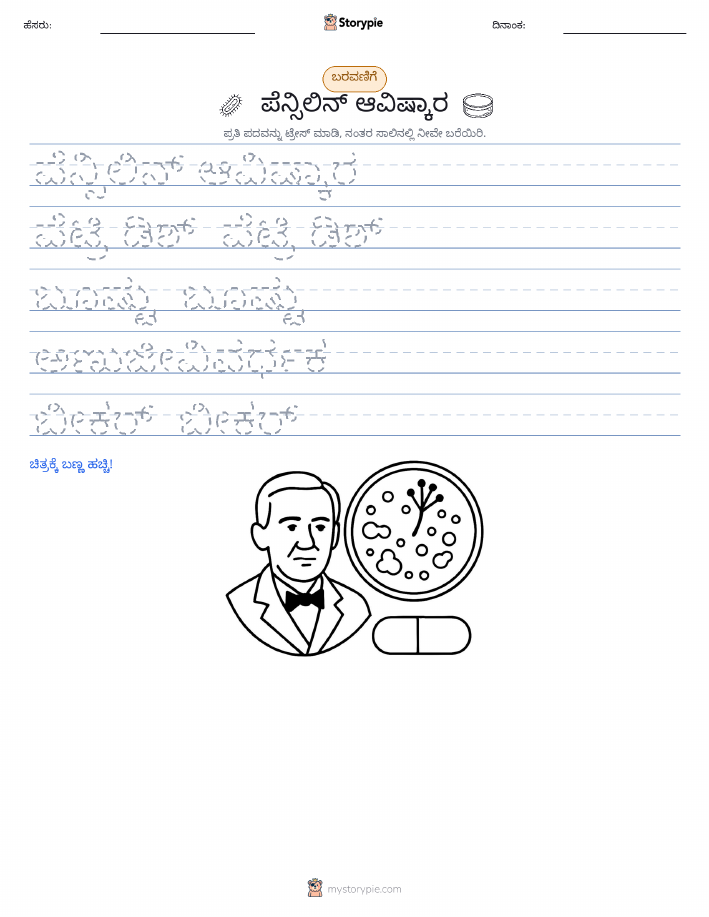 ಹೆಸರು:
Storypie
ದಿನಾಂಕ:
ಬರವಣಿಗೆ
ಪೆನ್ಸಿಲಿನ್ ಆವಿಷ್ಕಾರ
ಪ್ರತಿ ಪದವನ್ನು ಟ್ರೇಸ್ ಮಾಡಿ, ನಂತರ ಸಾಲಿನಲ್ಲಿ ನೀವೇ ಬರೆಯಿರಿ.
ಪೆನ್ಸಿಲಿನ್ ಆವಿಷ್ಕಾರ
ಪೆಟ್ರಿ ಡಿಶ್ ಪೆಟ್ರಿ ಡಿಶ್
ಬೂಷ್ಟು ಬೂಷ್ಟು
ಅಣುಜೀವಿವರ್ಧಕ
ಬೀಕರ್ ಬೀಕರ್
ಚಿತ್ರಕ್ಕೆ ಬಣ್ಣ ಹಚ್ಚಿ!
mystorypie.com